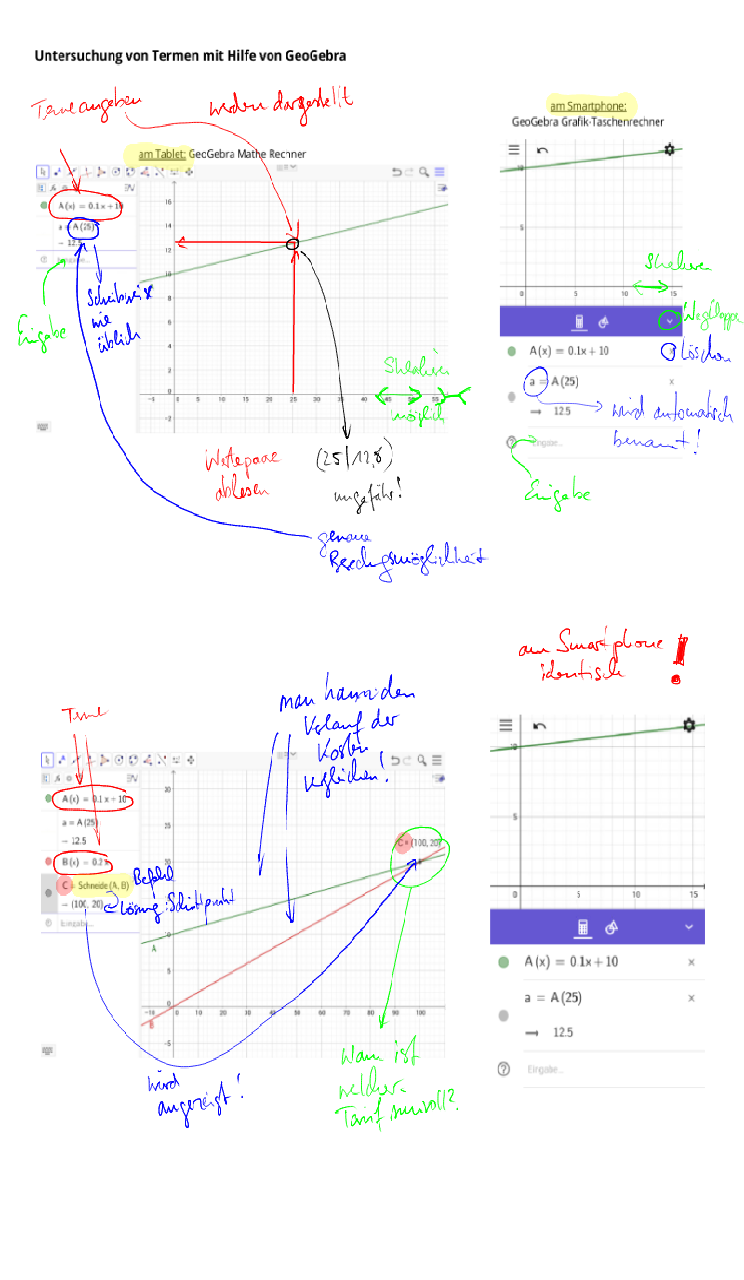 Untersuchung von Termen mit Hilfe von GeoGebra
Terme angeben
werden dargestellt
am Smartphone:
GeoGebra Grafik-Taschenrechner
am Tablet: GeoGebra Mathe Rechner
A(x) = 0.1x + 10
a = A(25)
→ 12.5
Eingabe
Schreibweise
wie
üblich
16
14
12
10
8
6
4
2
0
-2
-5
0
5
10
15
20
25
30
35
40
45
50
55
Skalieren
möglich
Wertepaare
ablesen
(25|12,8)
ungefähr!
genaue
Berechnungsmöglichkeit
10
5
0
5
10
15
Skalieren
Wegklappen
A(x) = 0.1x + 10
Löschen
a = A(25)
×
→ 12.5
wird automatisch
benannt!
Eingabe...
Eingabe
am Smartphone
identisch !
Terme
man kann den
Verlauf der
Kosten
vergleichen!
A(x) = 0.1x + 10
a = A(25)
→ 12.5
B(x) = 0.2x
Befehl
C = Schneide(A, B)
= (100, 20)
Lösung: Schnittpunkt
Eingabe...
C = (100, 20)
20
25
20
15
10
5
0
-5
A
B
-10
0
10
20
30
40
50
60
70
80
90
100
wird
angezeigt!
Wann ist
welcher
Tarif sinnvoll?
10
5
0
5
10
15
A(x) = 0.1x + 10
×
a = A(25)
×
→ 12.5
Eingabe...